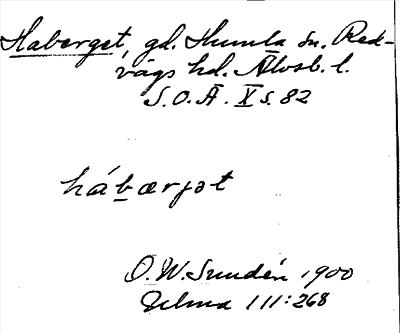 Haberget, gd. Humla sn. Red-
vägs hd. Älvsb. l.
S.O.Ä. X s. 82
hábærjət
O.W. Sundén 1900
Ulma 111:268